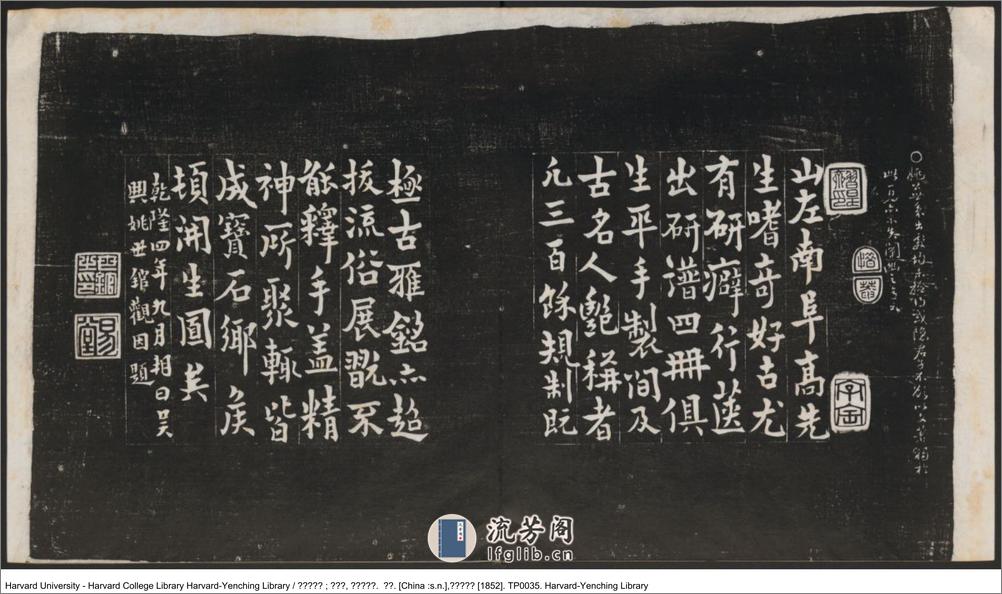 山左南阜高先
生嗜奇好古尤
有研癖行箧
出研譜四冊俱
生平手製間及
古名人艷稱者
凡三百餘規制既
極古雅銘亦超
拔流俗展翫不
能釋手盖精
神所聚輒皆
成寶石鄉侯
頓開生面矣
乾隆四年九月相日吳
興姚世錧觀因題
流芳阁
lfglib.cn
Harvard University - Harvard College Library Harvard-Yenching Library / ????? ; ???, ?????. ??. [China :s.n.],????? [1852]. TP0035. Harvard-Yenching Library